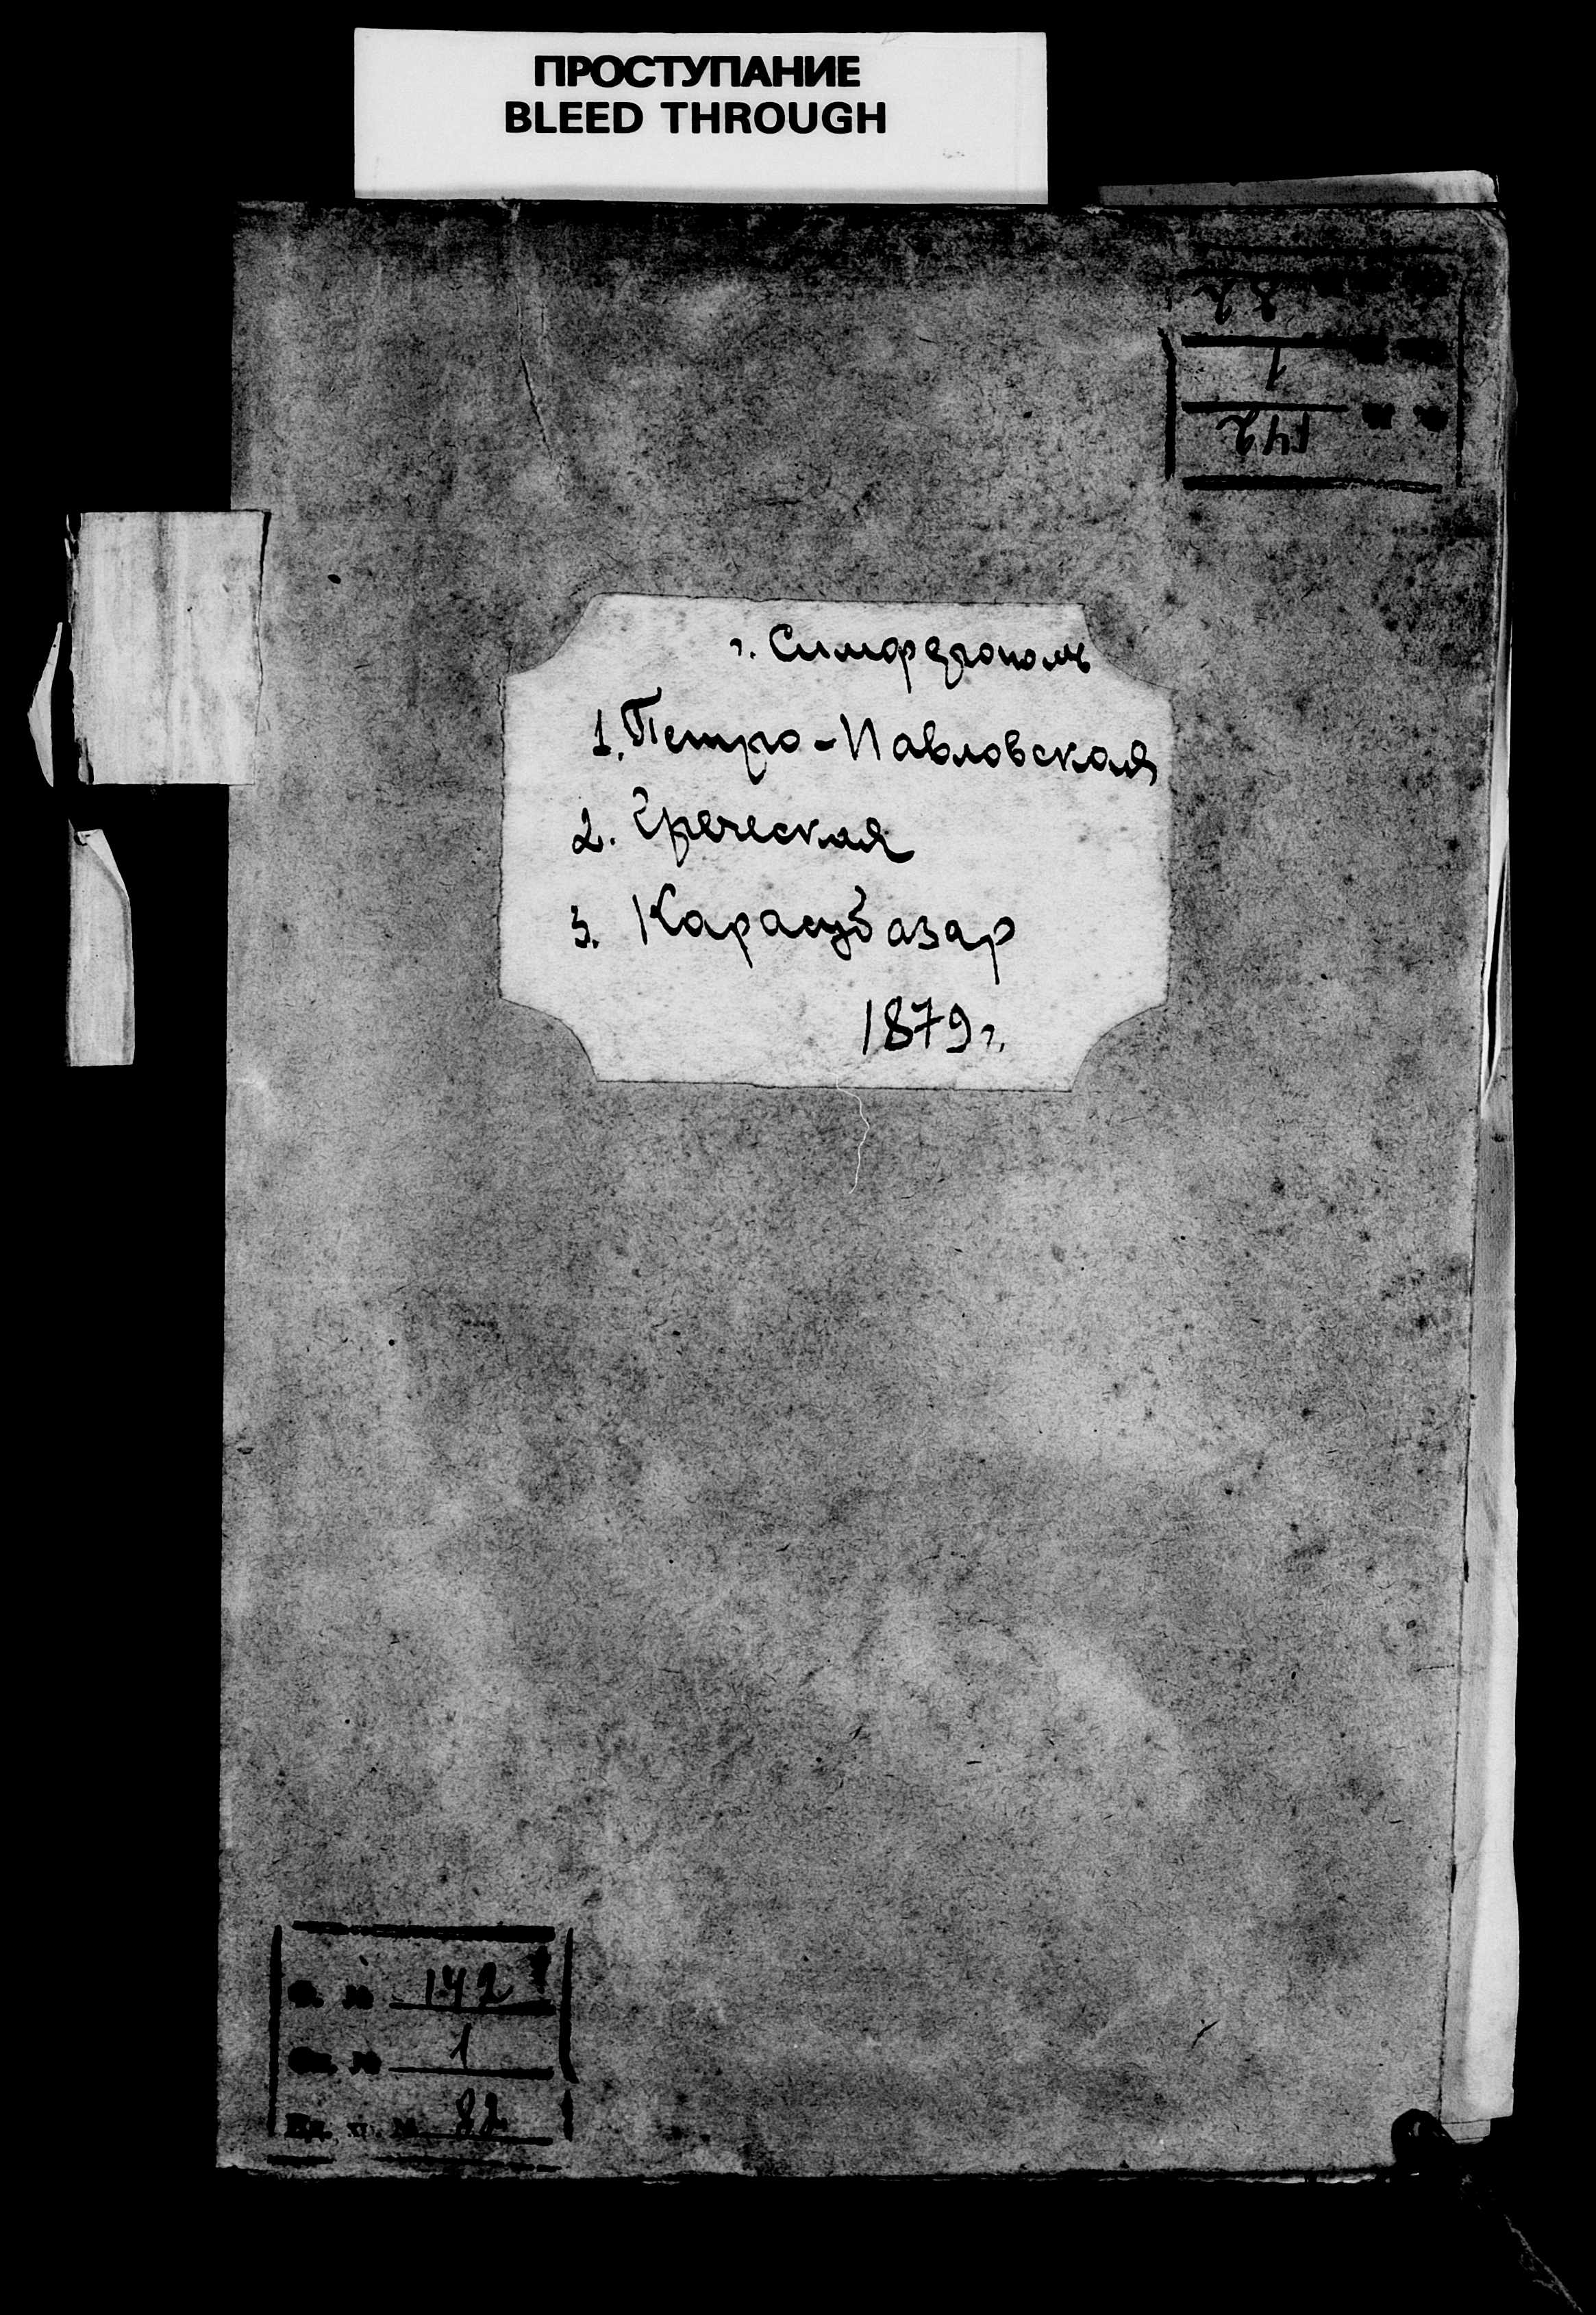 ПРОСТУПАНИЕ
BLEED THROUGH
142
1
82
г. Симферополь
1. Петро-Павловская
2. Греческая
3. Карасубазар
1879 г.
Ф. № 142
Оп. № 1
Ед. х. № 82